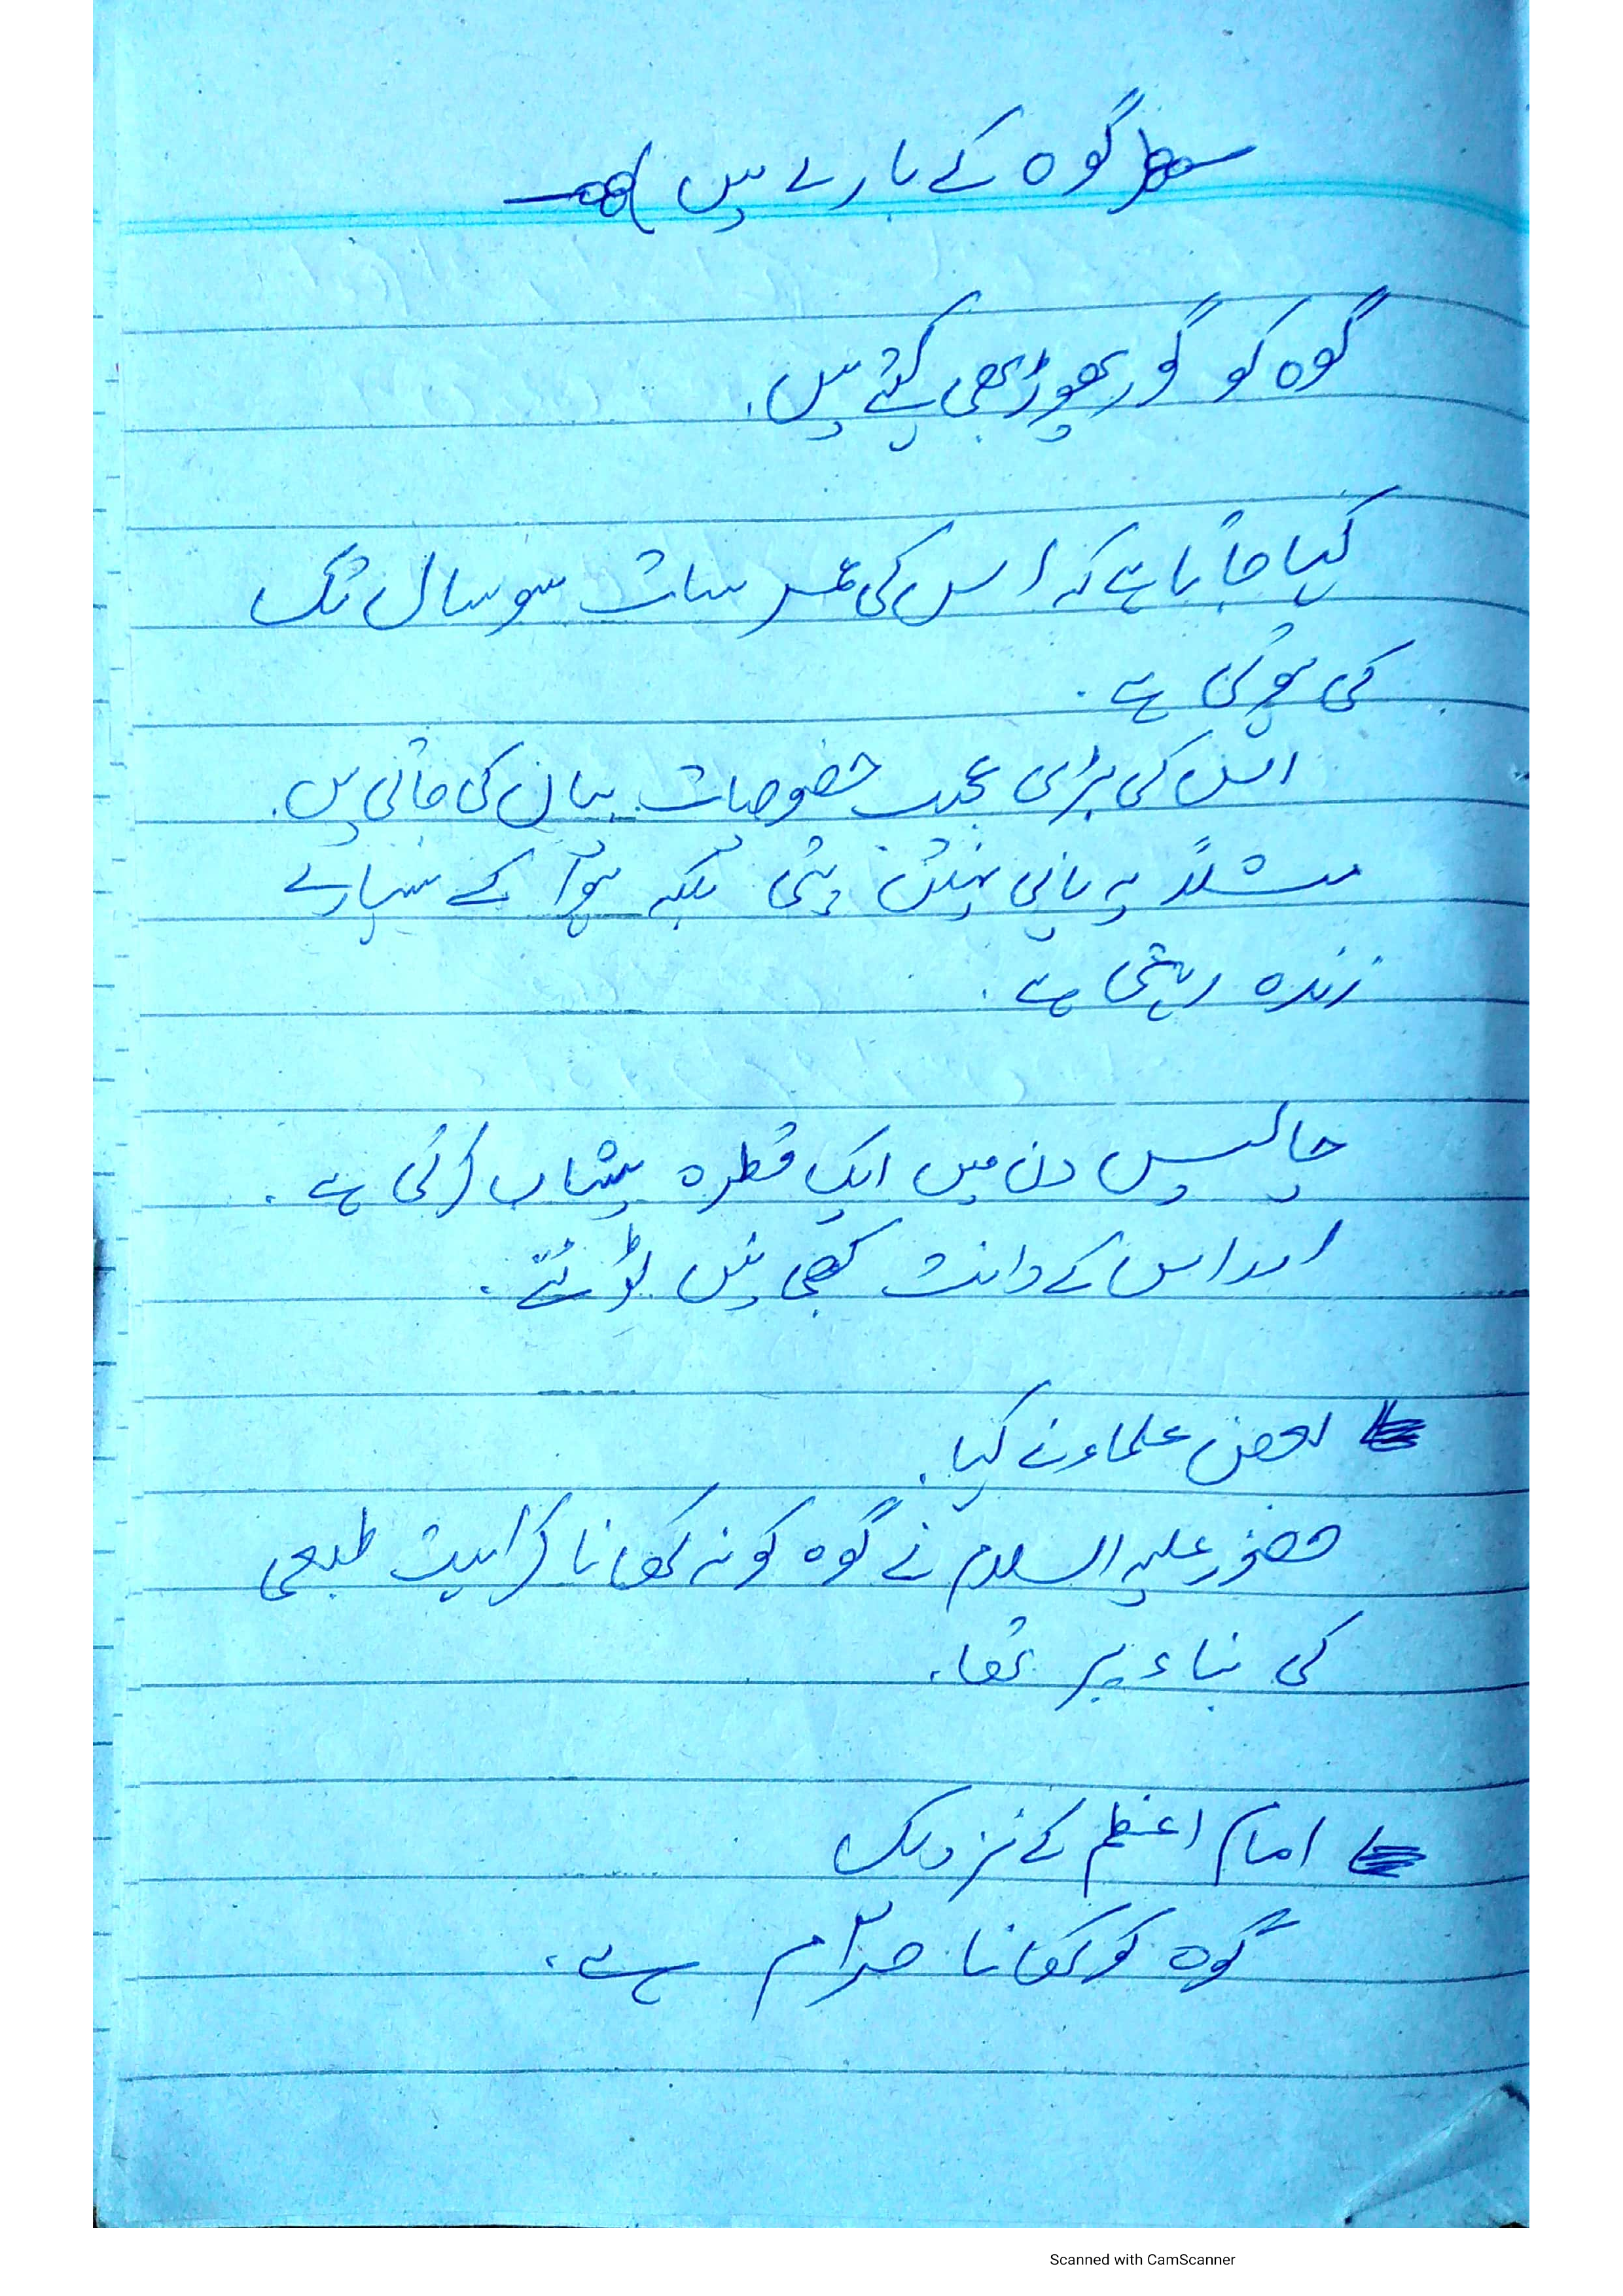 گوہ کے بارے میں
گوہ کو گور پھوڑ بھی کہتے ہیں۔
کہا جاتا ہے کہ اس کی عمر سات سو سال تک
کی ہوتی ہے۔
اس کی بڑی عجیب خصوصیات بیان کی جاتی ہیں۔
مثلاً یہ پانی نہیں پیتی بلکہ ہوا کے سہارے
زندہ رہتی ہے۔
چالیس دن میں ایک قطرہ پیشاب کرتی ہے۔
اور اس کے دانت کبھی نہیں ٹوٹتے۔
بعض علماء نے کہا۔
حضور علیہ السلام نے گوہ کو نہ کھانا کراہیت طبعی
کی بناء پر تھا۔
امام اعظم کے نزدیک
گوہ کو کھانا حرام ہے۔
Scanned with CamScanner